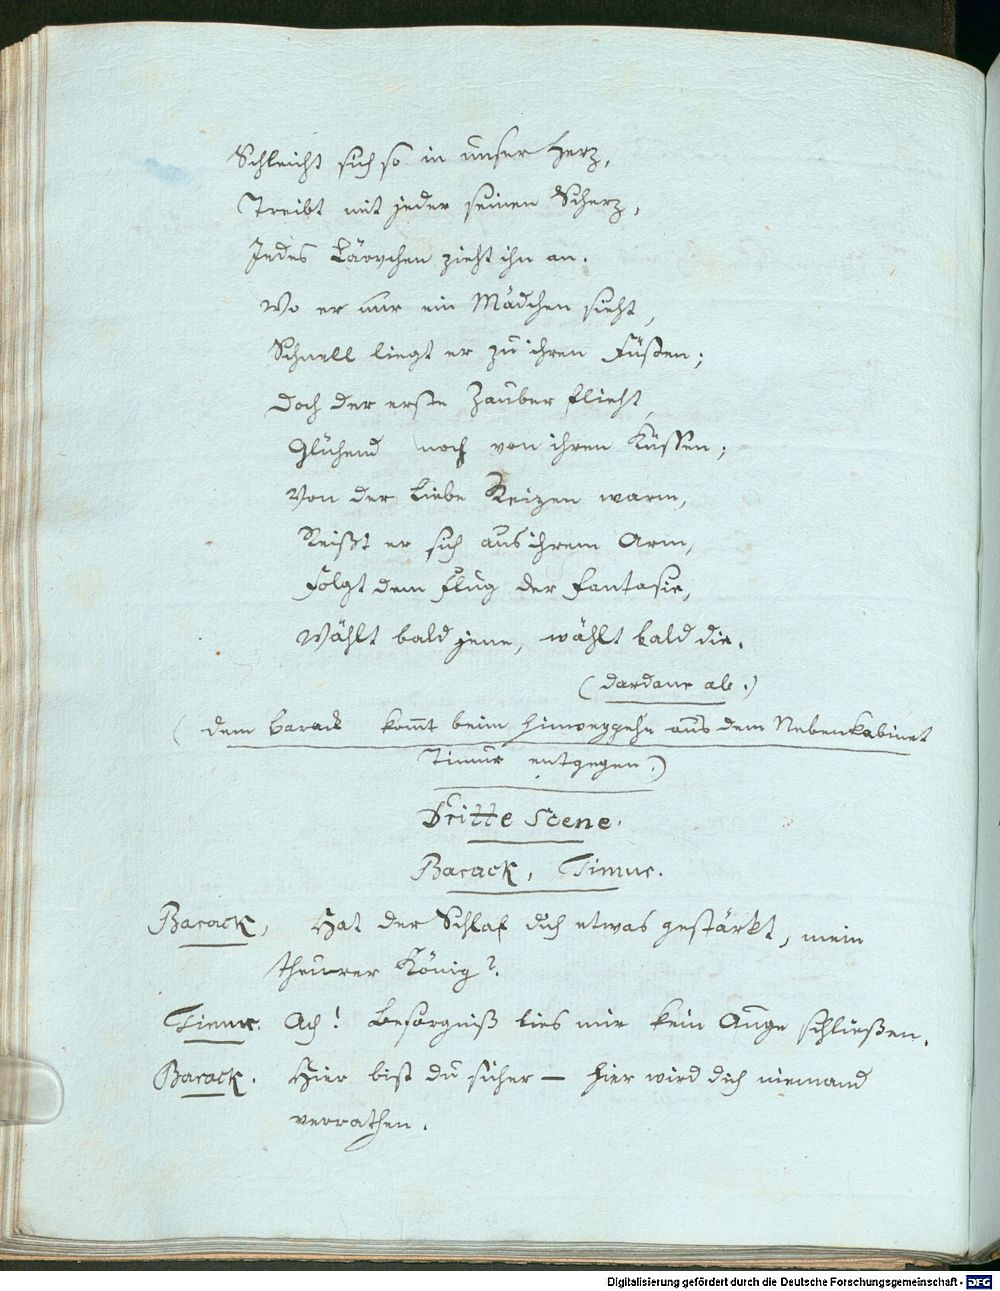 Schleicht sich so in unser Herz,
Treibt mit jeder seinen Scherz,
Jedes Lärvchen zieht ihn an.
Wo er nur ein Mädchen sieht,
Schnell liegt er zu ihren Füßen;
Doch der erste Zauber flieht,
Glühend noch von ihren Küssen;
Von der Liebe Reizen warm,
Reißt er sich aus ihrem Arm,
Folgt dem Flug der Fantasie,
Wählt bald jene, wählt bald die.
(Dardane ab.)
(dem Barack kom̄t beim Hinweggehn aus dem Nebenkabinet
Timur entgegen.)
Dritte Scene.
Barack, Timur.
Barack, Hat der Schlaf dich etwas gestärkt, mein
theurer König?
Timur. Ach! Besorgniß lies mir kein Auge schließen.
Barack. Hier bist du sicher – hier wird dich niemand
verrathen.
Digitalisierung gefördert durch die Deutsche Forschungsgemeinschaft - DFG